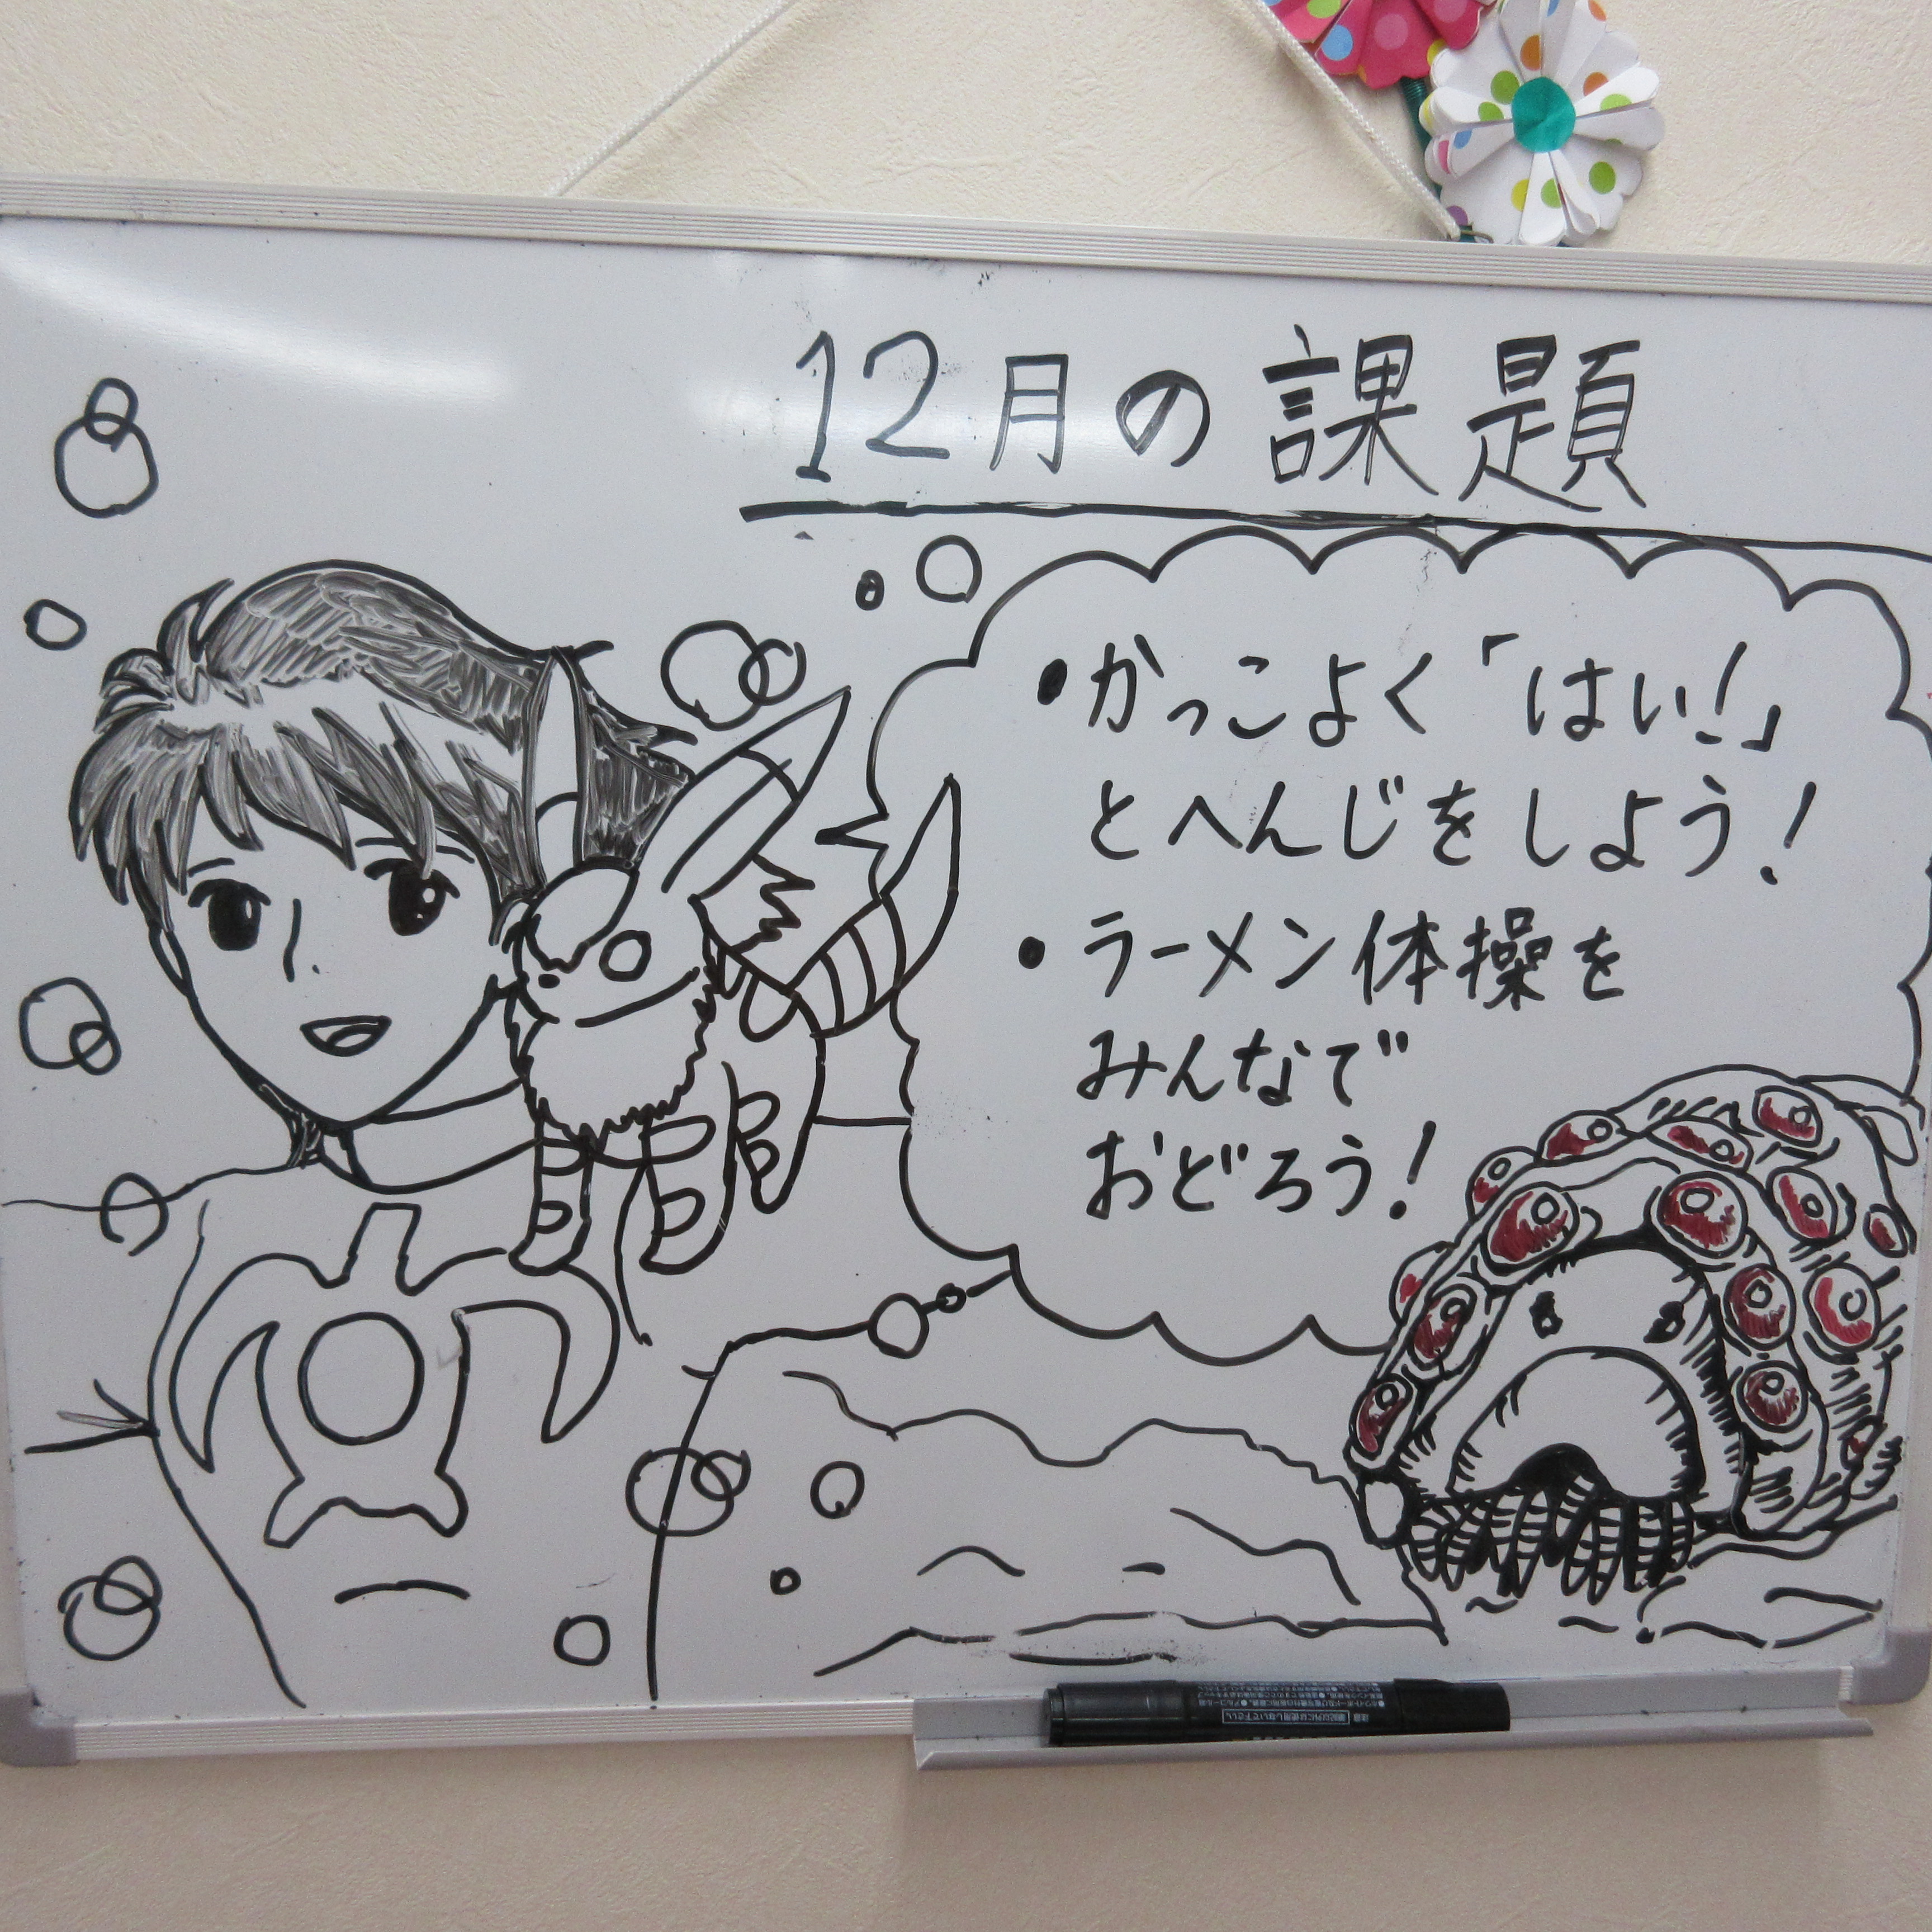 12月の課題
•かっこよく「はい!」
とへんじをしよう!
•ラーメン体操を
みんなで
おどろう!